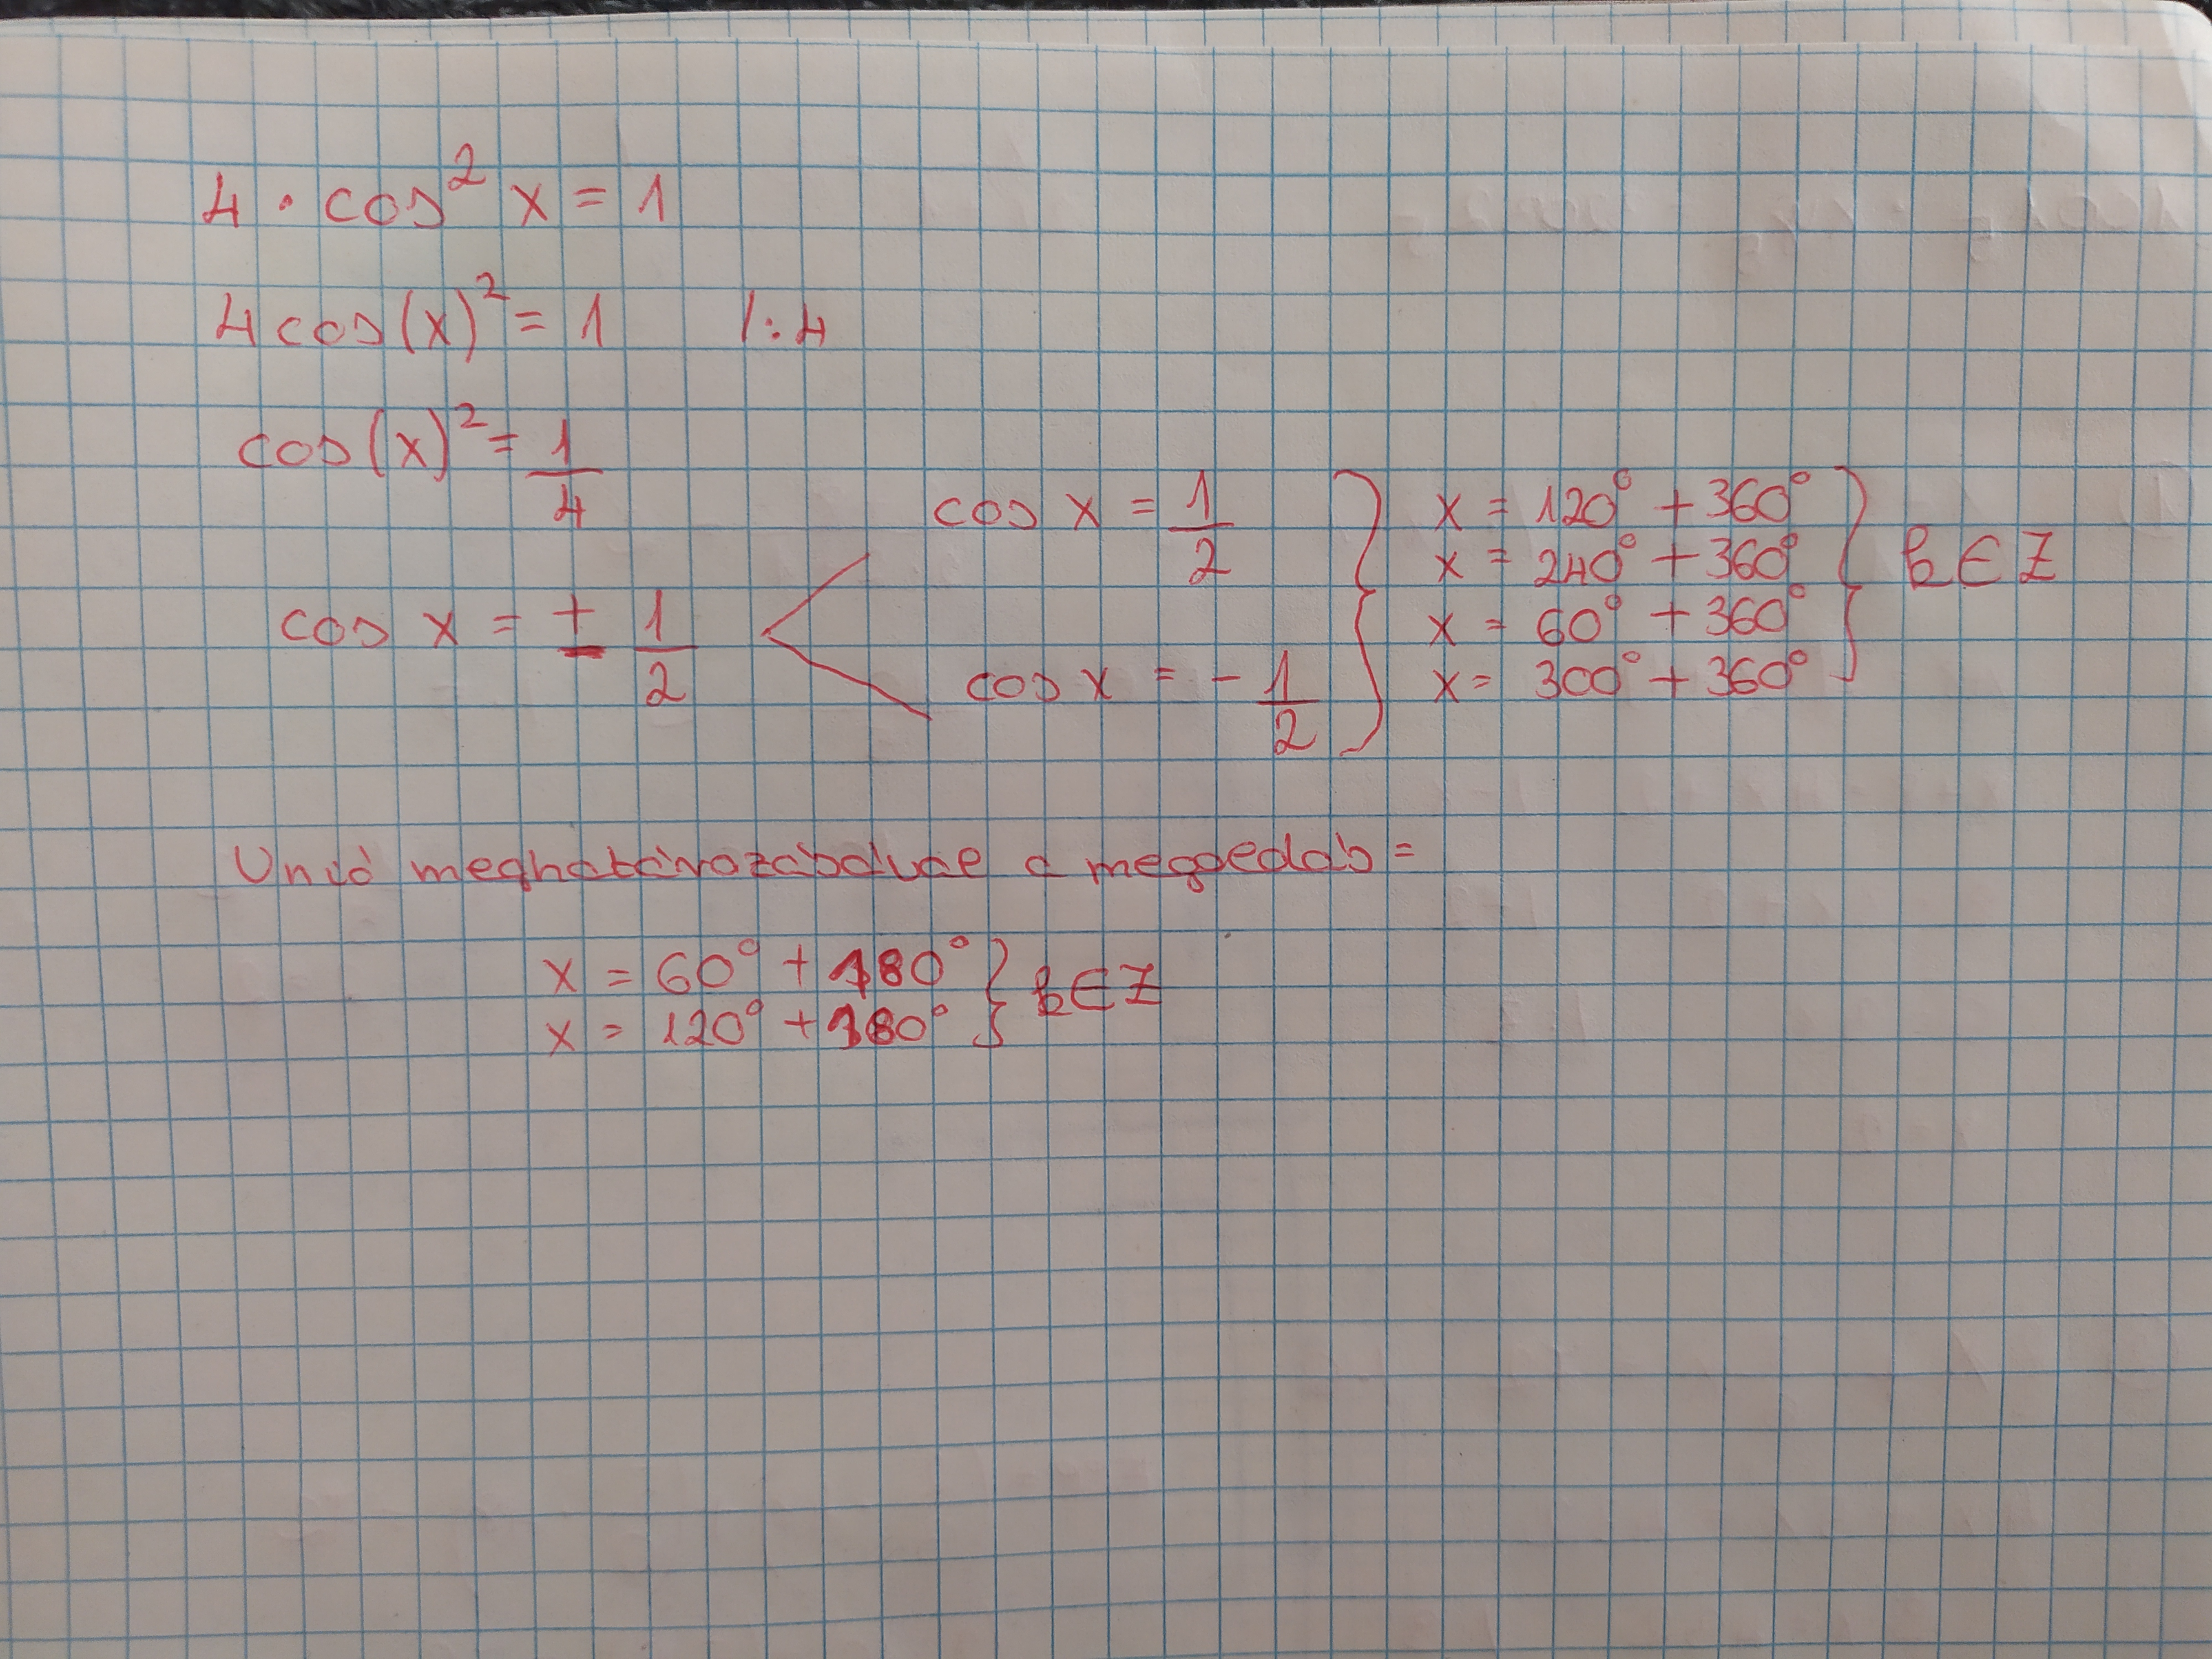 4 · cos² x = 1
4 cos(x)² = 1 /:4
cos(x)² = 1/4
cos x = ± 1/2
cos x = 1/2
cos x = - 1/2
x = 120° + 360°
x = 240° + 360°
x = 60° + 360°
x = 300° + 360°
k ∈ Z
Unió meghatározásával a megoldás =
x = 60° + 180°
x = 120° + 180°
k ∈ Z